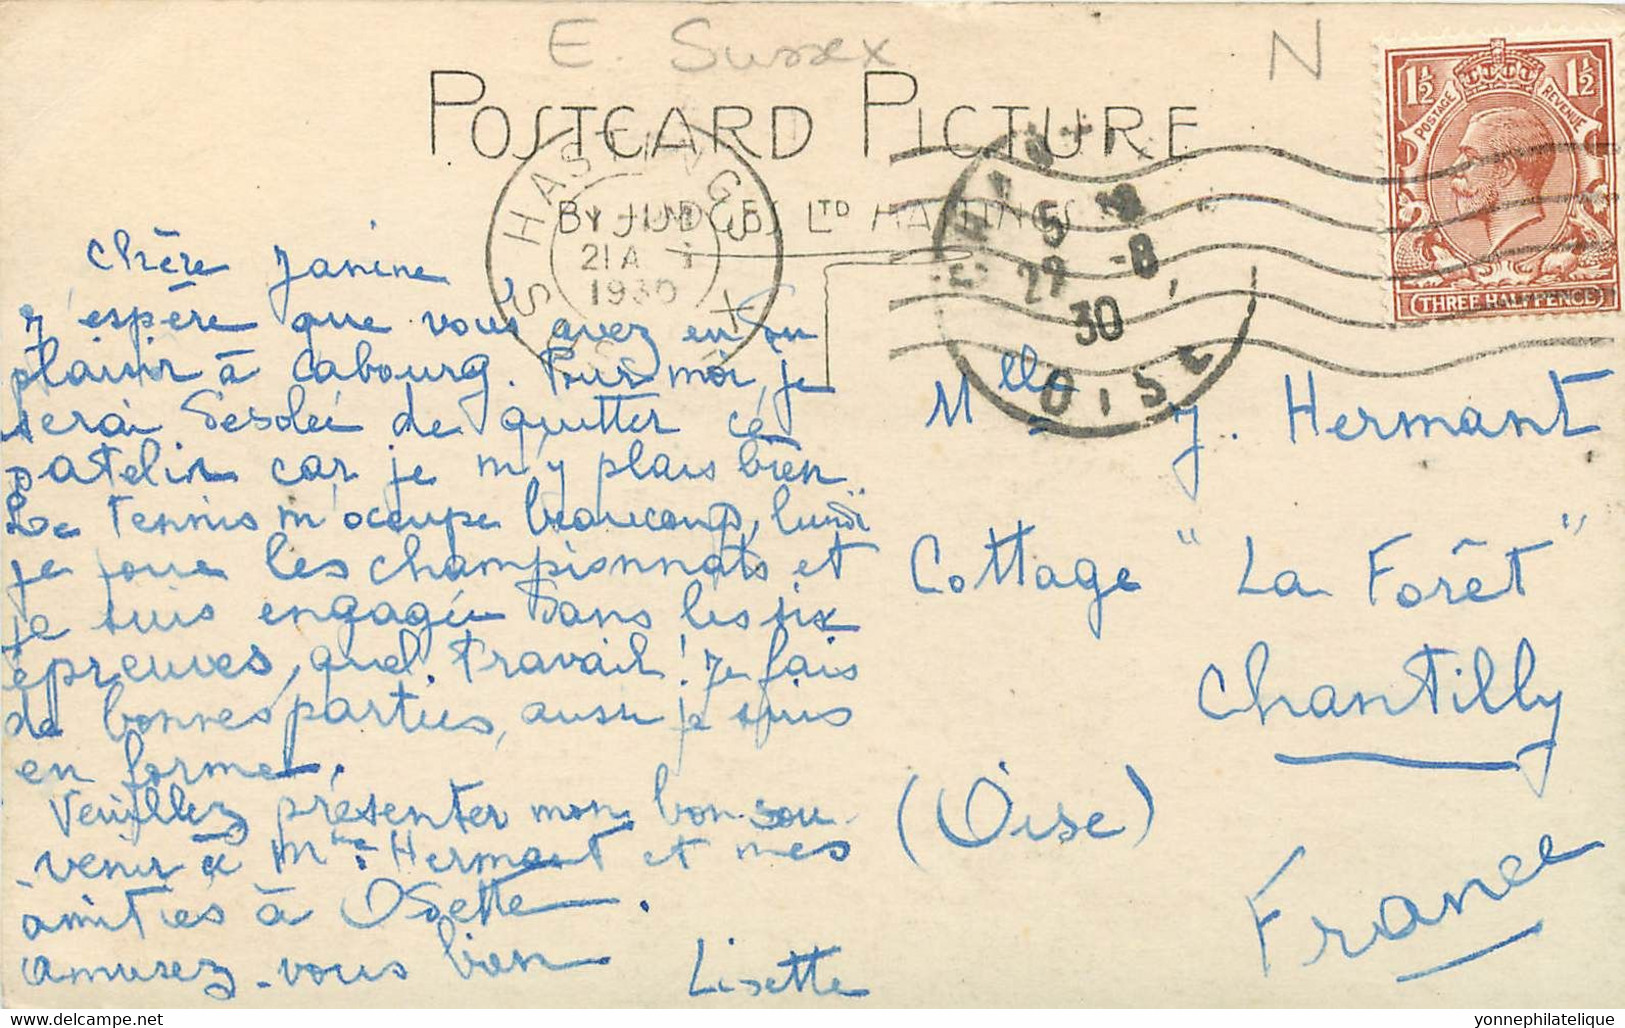 E. Sussex
N
POSTCARD PICTURE
BY JUDGES LTD HASTINGS
HASTINGS
SUSSEX
21 A
1930
CHANTILLY
5
22 -8
30
OISE
POSTAGE REVENUE
1½ 1½
THREE HALFPENCE
Chère Janine,
J'espère que vous avez eu du
plaisir à Cabourg. Pour moi, je
serai désolée de quitter ce
patelin car je m'y plais bien
Le tennis m'occupe beaucoup, lundi
je joue les championnats et
je suis engagée dans les six
épreuves, quel travail! Je fais
de bonnes parties, aussi je suis
en forme.
Veuillez présenter mon bon sou-
venir à Mme Hermant et mes
amitiés à Odette.
Amusez-vous bien
Lisette
Melle J. Hermant
Cottage "La Forêt"
Chantilly
(Oise)
France
delcampe.net
yonnephilatelique